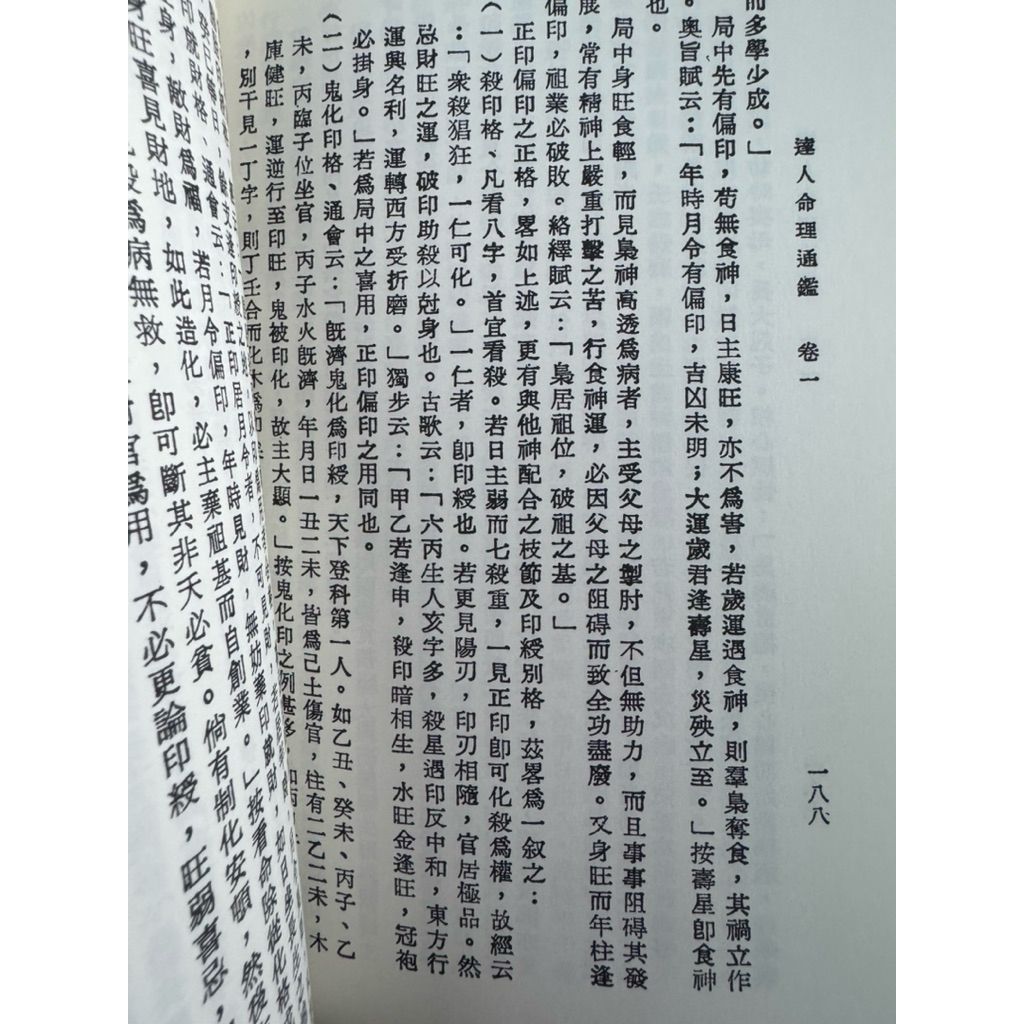 達人命理通鑑　卷一
一八八
而多學少成。」
局中先有偏印，苟無食神，日主康旺，亦不爲害，若歲運遇食神，則羣梟奪食，其禍立作
。奧旨賦云：「年時月令有偏印，吉凶未明；大運歲君逢壽星，災殃立至。」按壽星卽食神
也。
局中身旺食輕，而見梟神高透爲病者，主受父母之掣肘，不但無助力，而且事事阻碍其發
展，常有精神上嚴重打擊之苦，行食神運，必因父母之阻碍而致全功盡廢。又身旺而年柱逢
偏印，祖業必破敗。絡繹賦云：「梟居祖位，破祖之基。」
正印偏印之正格，畧如上述，更有與他神配合之枝節及印綬別格，茲畧爲一叙之：
（一）殺印格、凡看八字，首宜看殺。若日主弱而七殺重，一見正印卽可化殺爲權，故經云
：「衆殺猖狂，一仁可化。」一仁者，卽印綬也。若更見陽刃，印刃相隨，官居極品。然
忌財旺之運，破印助殺以尅身也。古歌云：「六丙生人亥字多，殺星遇印反中和，東方行
運興名利，運轉西方受折磨。」獨步云：「甲乙若逢申，殺印暗相生，水旺金逢旺，冠袍
必掛身。」若爲局中之喜用，正印偏印之用同也。
（二）鬼化印格、通會云：「旣濟鬼化爲印綬，天下登科第一人。如乙丑、癸未、丙子、乙
未，丙臨子位坐官，丙子水火旣濟，年月日一丑二未，皆爲己土傷官，柱有二乙二未，木
庫健旺，運逆行至印旺，鬼被印化，故主大顯。」按鬼化印之例甚多，
，別干見一丁字，則丁壬合而化木爲印
逢印綬之地，
癸巳每日，
印就財格、通會云：「正印居月令者，不可見財，
身，敵財爲福，若月令偏印，年時見財，無妨棄印就財，
身旺喜見財地，如此造化，必主棄祖基而自創業。」按看命除從化格
殺爲病無救，卽可斷其非夭必貧。倘有制化安頓，然後
官爲用，不必更論印綬，旺弱喜忌，